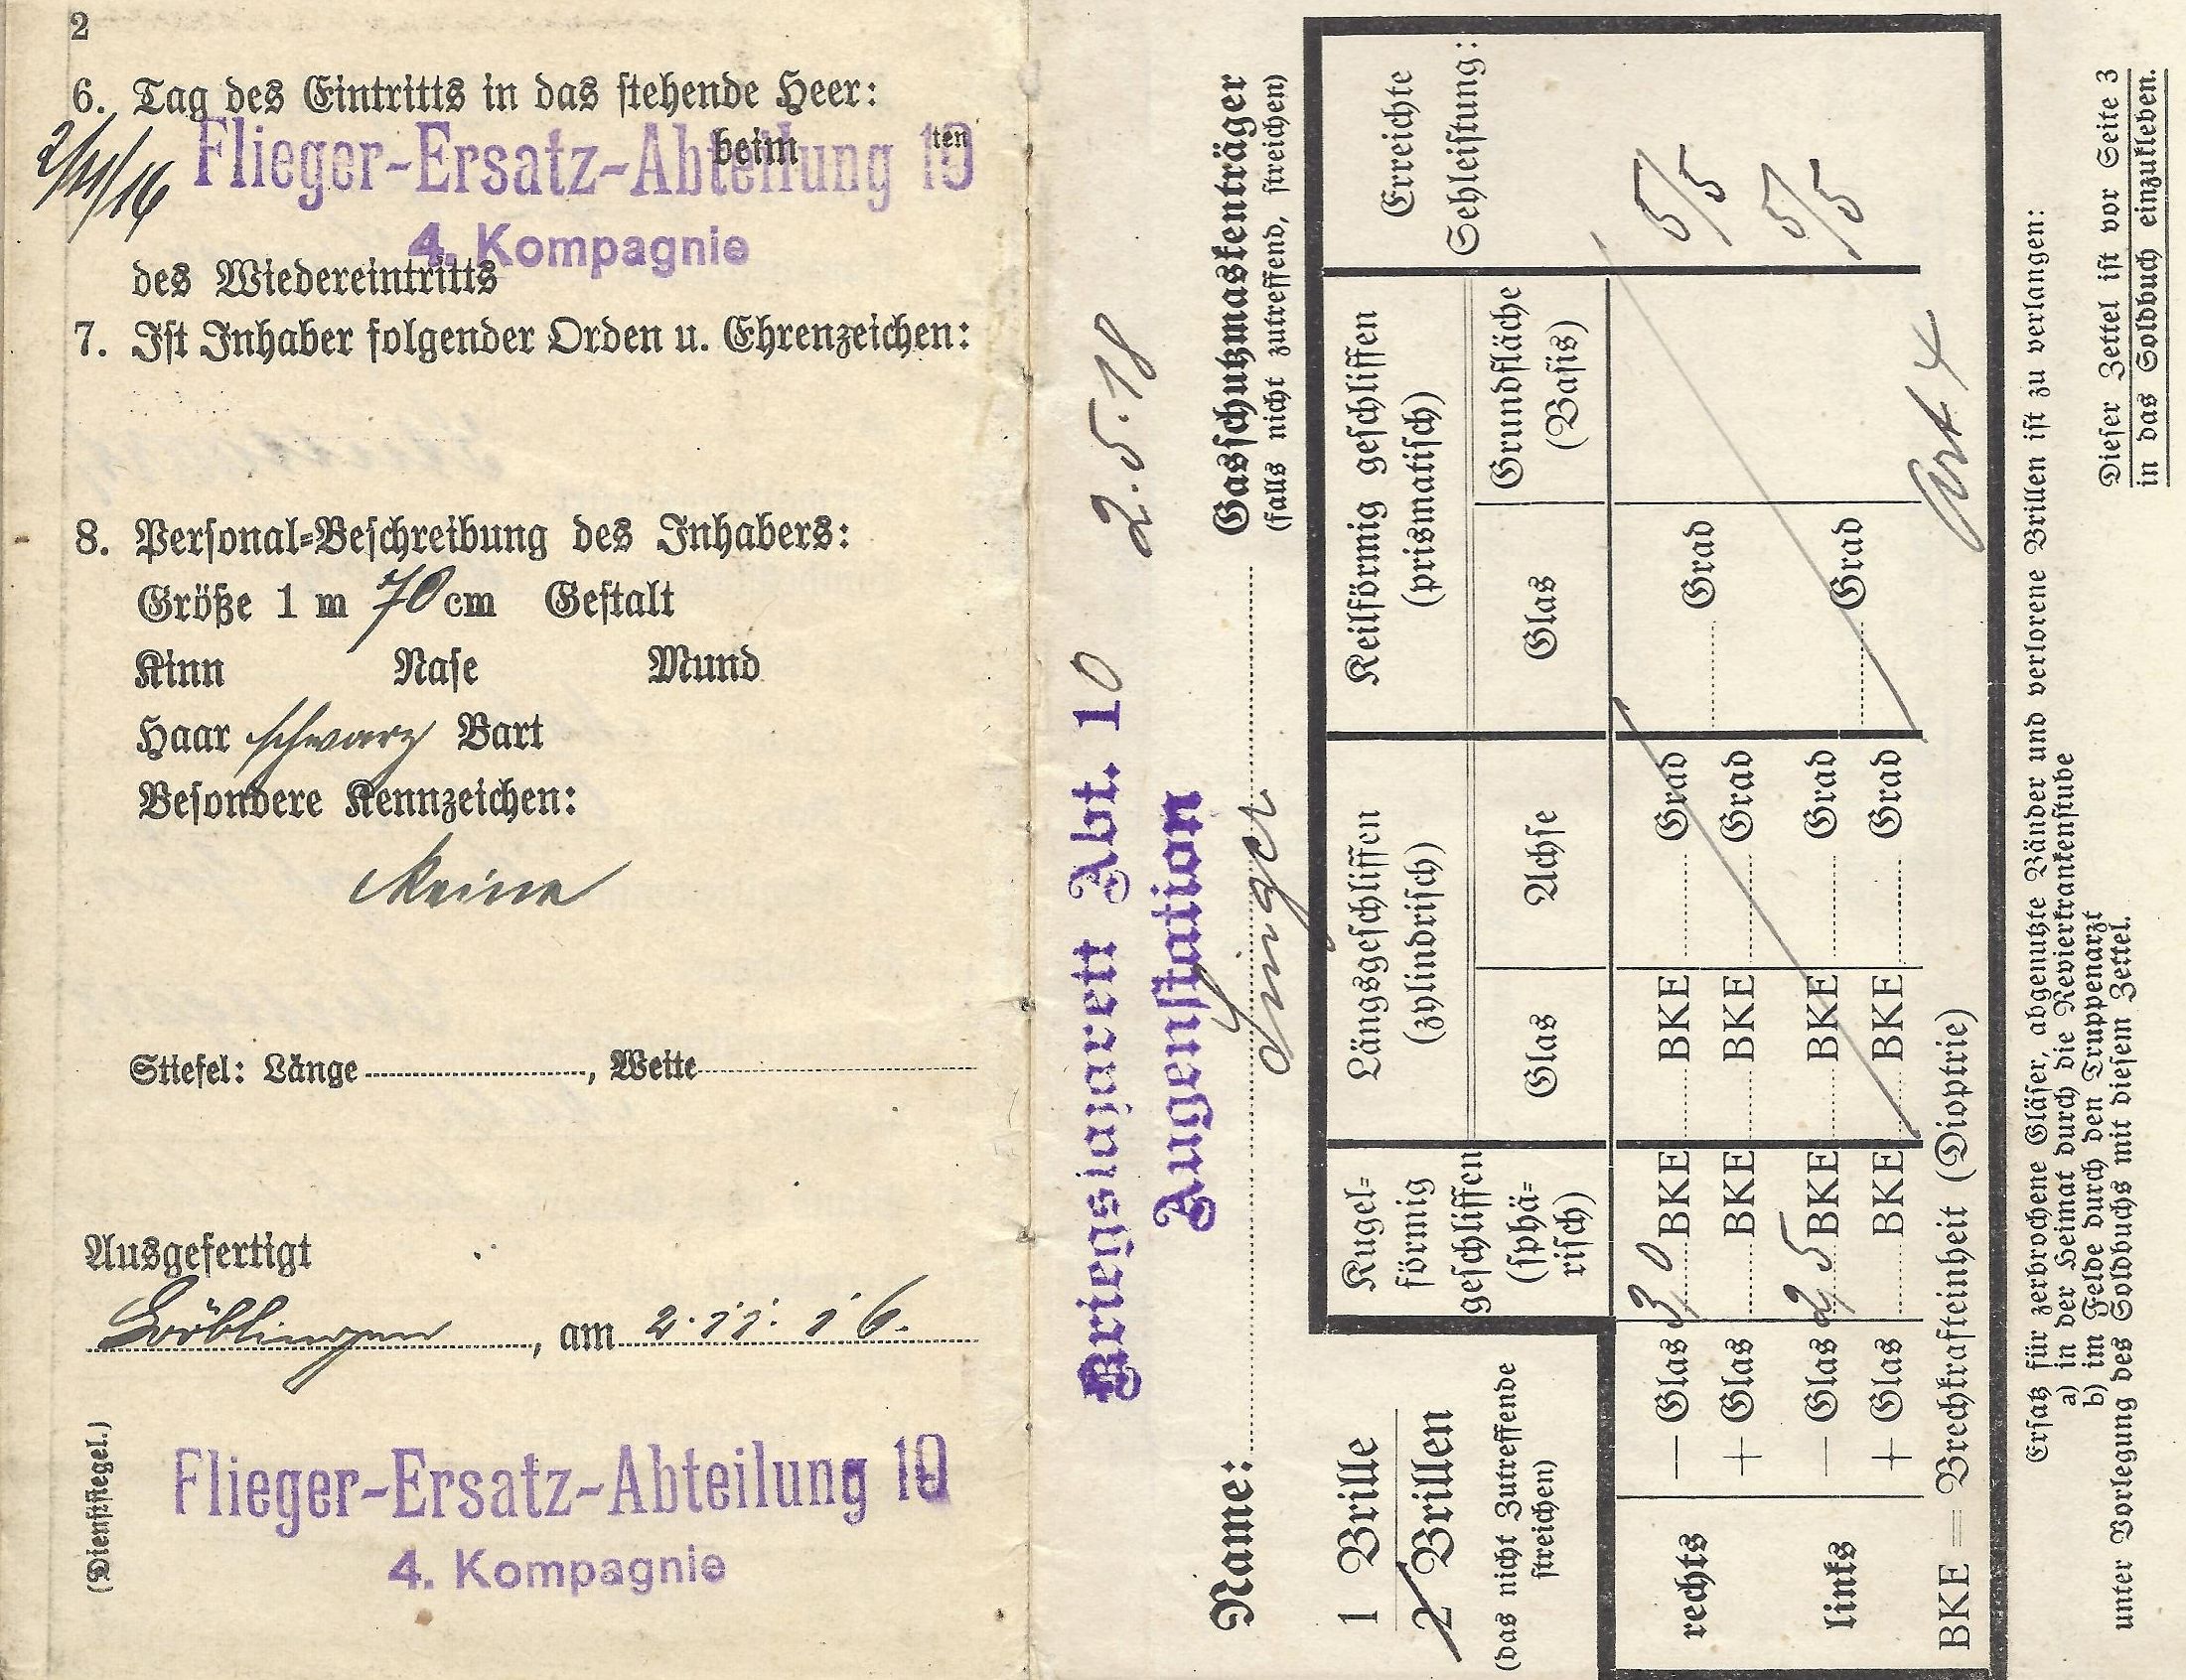 2
6. Tag des Eintritts in das stehende Heer:
2/11/16 beim ten
Flieger-Ersatz-Abteilung 10
4. Kompagnie
des Wiedereintritts
7. Ist Inhaber folgender Orden u. Ehrenzeichen:
8. Personal-Beschreibung des Inhabers:
Größe 1 m 70 cm Gestalt
Kinn Nase Mund
Haar schwarz Bart
Besondere Kennzeichen:
Keine
Stiefel: Länge , Weite
Ausgefertigt
Böblingen, am 2.11.16.
(Dienstsiegel.)
Flieger-Ersatz-Abteilung 10
4. Kompagnie
Kriegslazarett Abt. 10 2.5.18
Augenstation
Name: Singer Gasschutzmaskenträger
(falls nicht zutreffend, streichen)
1 Brille
2 Brillen
(das nicht Zutreffende
streichen)
Kugel-
förmig
geschliffen
(sphä-
risch)
Längsgeschliffen
(zylindrisch)
Glas Achse
Keilförmig geschliffen
(prismatisch)
Glas Grundfläche
(Basis)
Erreichte
Sehleistung:
rechts — Glas 3,0 BKE BKE Grad Grad 5/5
+ Glas BKE BKE Grad
links — Glas 2,5 BKE BKE Grad Grad 5/5
+ Glas BKE BKE Grad
BKE = Brechkrafteinheit (Dioptrie)
Ersatz für zerbrochene Gläser, abgenutzte Bänder und verlorene Brillen ist zu verlangen:
a) in der Heimat durch die Revierkrankenstube
b) im Felde durch den Truppenarzt
unter Vorlegung des Soldbuchs mit diesem Zettel.
Dieser Zettel ist vor Seite 3
in das Soldbuch einzukleben.